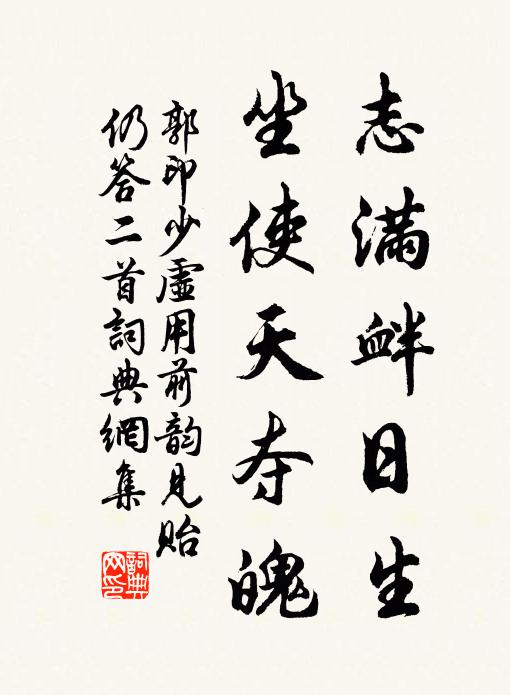 志满衅日生
坐使天夺魄
郭印少虚用前韵见贻
仍答二首词典網集
詞典
网印